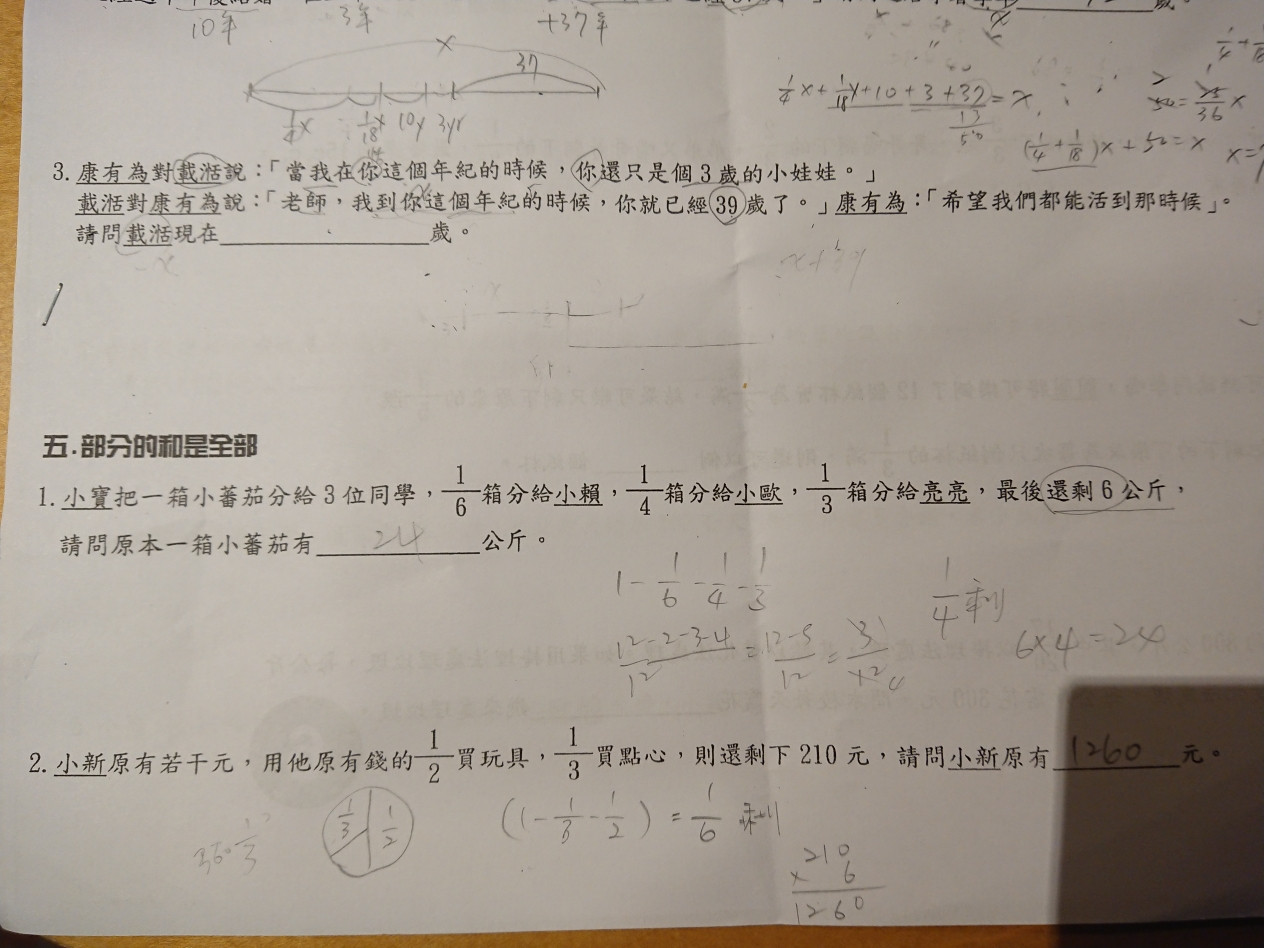 10年 3年 +37年
x
37
1/4x 1/18x 10y 3yr
1/4x+1/18x+10+3+37=x
13
50
(1/4+1/18)x+50=x
3. 康有為對載湉說：「當我在你這個年紀的時候，你還只是個 3 歲的小娃娃。」
載湉對康有為說：「老師，我到你這個年紀的時候，你就已經 39 歲了。」康有為：「希望我們都能活到那時候」。
請問載湉現在____________歲。
五．部分的和是全部
1. 小寶把一箱小蕃茄分給 3 位同學，1/6箱分給小賴，1/4箱分給小歐，1/3箱分給亮亮，最後還剩 6 公斤，
請問原本一箱小蕃茄有 24 公斤。
1-1/6-1/4-1/3
1/4剩
12-2-3-4/12=12-5/12=3/12 4
6×4=24
2. 小新原有若干元，用他原有錢的1/2買玩具，1/3買點心，則還剩下 210 元，請問小新原有 1260 元。
1/3 1/2
(1-1/3-1/2)=1/6 剩
210
× 6
1260